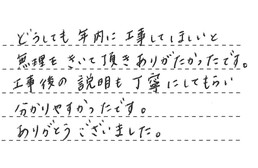 どうしても年内に工事してほしいと
無理をきいて頂きありがたかったです。
工事後の説明も丁寧にしてもらい
分かりやすかったです。
ありがとうございました。